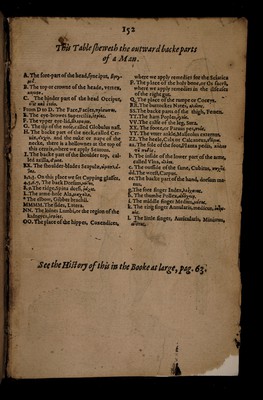 152
This Table sheweth the outward backe parts
of a Man.
A. The fore-part of the head, synciput,
B. The top or crowne of the heade, vertex,
C. The hinder part of the head Occiput,
From D to D. The Face, Facies,
E. The eye-browes supercilia,
F. The upper eye-lid,
G. The tip of the nose, called Globulus nasi.
H. The backe part of the neck, called Cer-
vix, or the nuke or nape of the
necke, there is a hollownes at the top of
this cervix, where we apply Seatons.
I. The backe part of the shoulder top, cal-
led axilla,
XX. The shoulder-blades Scapulæ,
2.2.3. On this place we set Cupping glasses.
The back Dorsum,
The ridge, Spina dorsi,
L The arme-hole Ala,
* The elbow, Gibber brachii.
MMMM. The sides, Latera.
NN. The loines Lumbi, or the region of the
Kidneyes,
OO. The place of the hippes, Coxendices,
where we apply remedies for the Sciatica
P. The place of the holy bone, or Os sacrũ,
where we apply remedies in the diseases
of the right gut.
Q. The place of the rumpe or Coccyx.
RR. The buttockes Nates,
SS. The backe parts of the thigh, Femen.
TT. The ham Poples,
VV. The calfe of the leg, Sura.
XX. The foote, or Parvus pes,
YY. The utter ankle, Malleolus externus.
ZZ. The heele, Calx or Calcaneus,
aa. The sole of the foot, Planta pedis,
b. The inside of the lower part of the arme,
called Vlna,
c. The outside of the same, Cubitus,
dd. The wrest, Carpus.
ee. The backe part of the hand, dorsum ma-
nus.
g. The fore finger Index,
f. The thumbe Pollex,
i. The middle finger Medius,
k. The ring finger Annularis, medicus,
l. The little finger, Auricularis, Minimus,
See the History of this in the Booke at large, pag. 63.